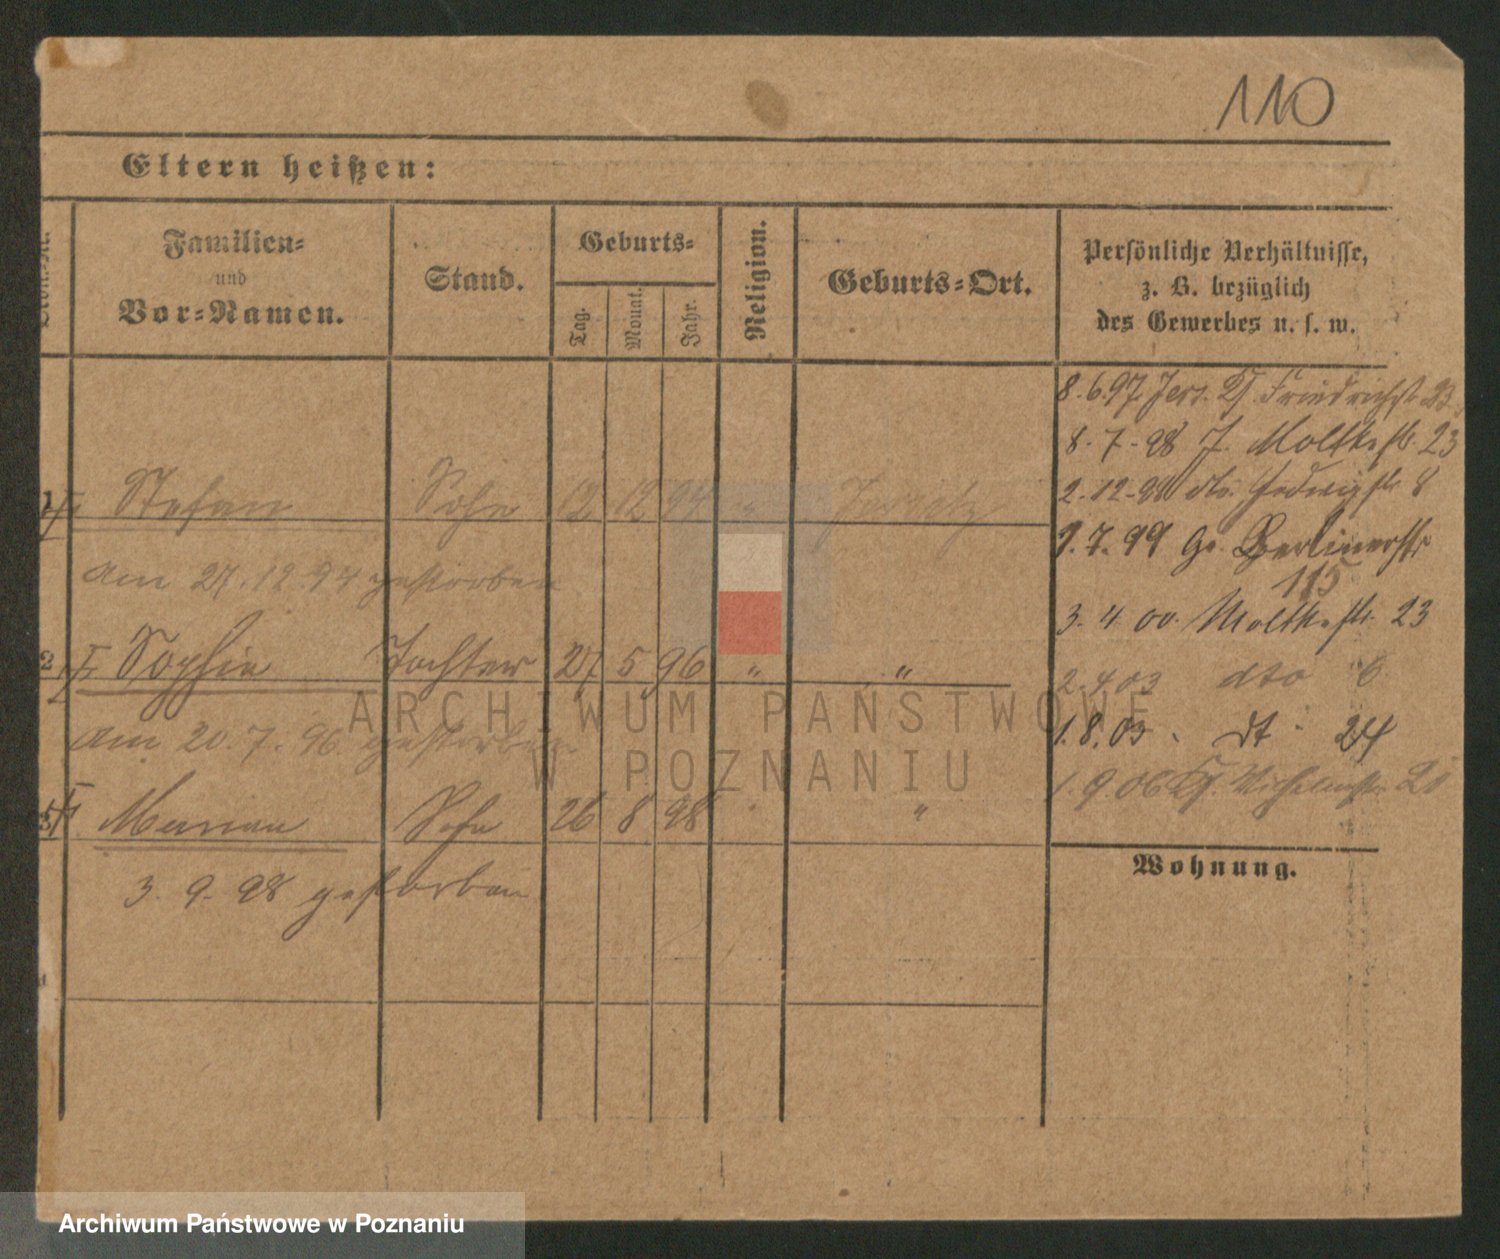 110
Eltern heißen:
Familien-
und
Vor-Namen.
Stand.
Geburts-
Tag.
Monat.
Jahr.
Religion.
Geburts-Ort.
Persönliche Verhältnisse,
z. B. bezüglich
des Gewerbes u. s. w.
8.6.97. Jers. Friedrichst
8.-7-98 J. Moltkestr. 23
2.-12-98 dto. Hedwigstr. 8
1 Stefan Sohn 12 12 94 Jersitz
9.7.99 Berlinerstr
115
am 27.12.94 gestorben
3. 4 00. Moltkestr. 23
2 Sophie Tochter 27 5 96 " "
2.4 03 dto 6
am 20.7.96 gestorben.
1.8.03 dt 24
1.9.06
3 Marian Sohn 26 8 98 "
Wohnung.
3. 9. 98 gestorben
ARCHIWUM PAŃSTWOWE
W POZNANIU
Archiwum Państwowe w Poznaniu